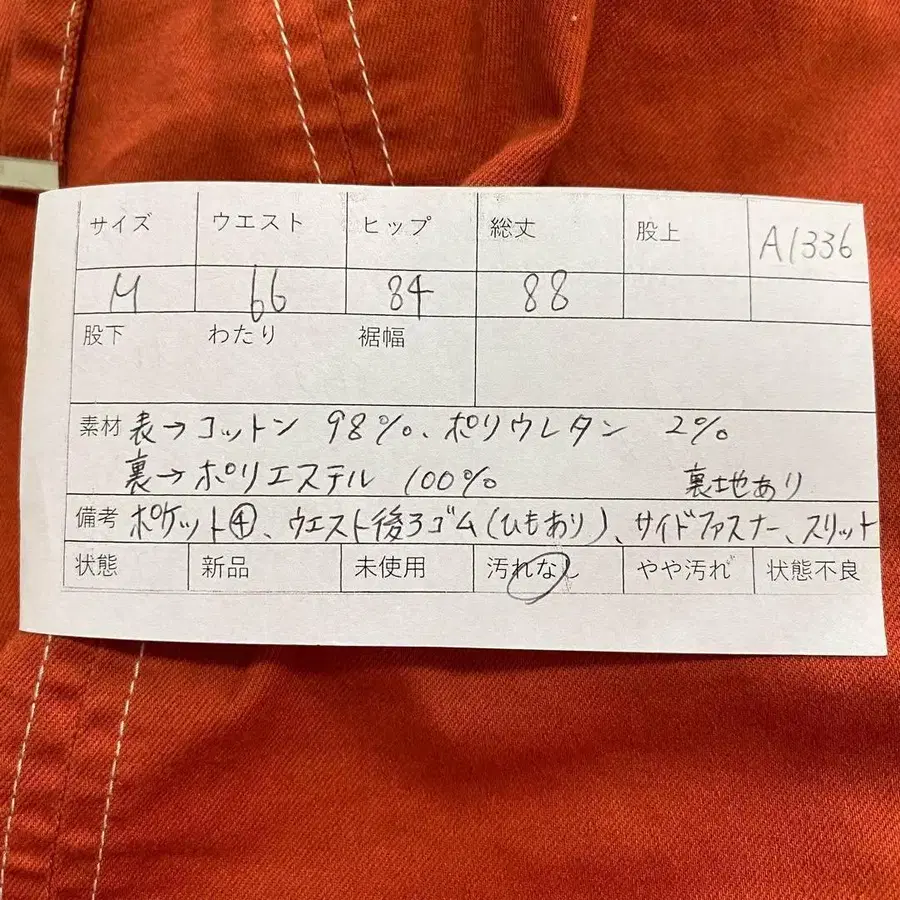 サイズ ウエスト ヒップ 総丈 股上 A1336
M 66 84 88
股下 わたり 裾幅
素材 表→コットン 98%、ポリウレタン 2%
裏→ポリエステル 100% 裏地あり
備考 ポケット④、ウエスト後ろゴム(ひもあり)、サイドファスナー、スリット
状態 新品 未使用 汚れなし やや汚れ 状態不良